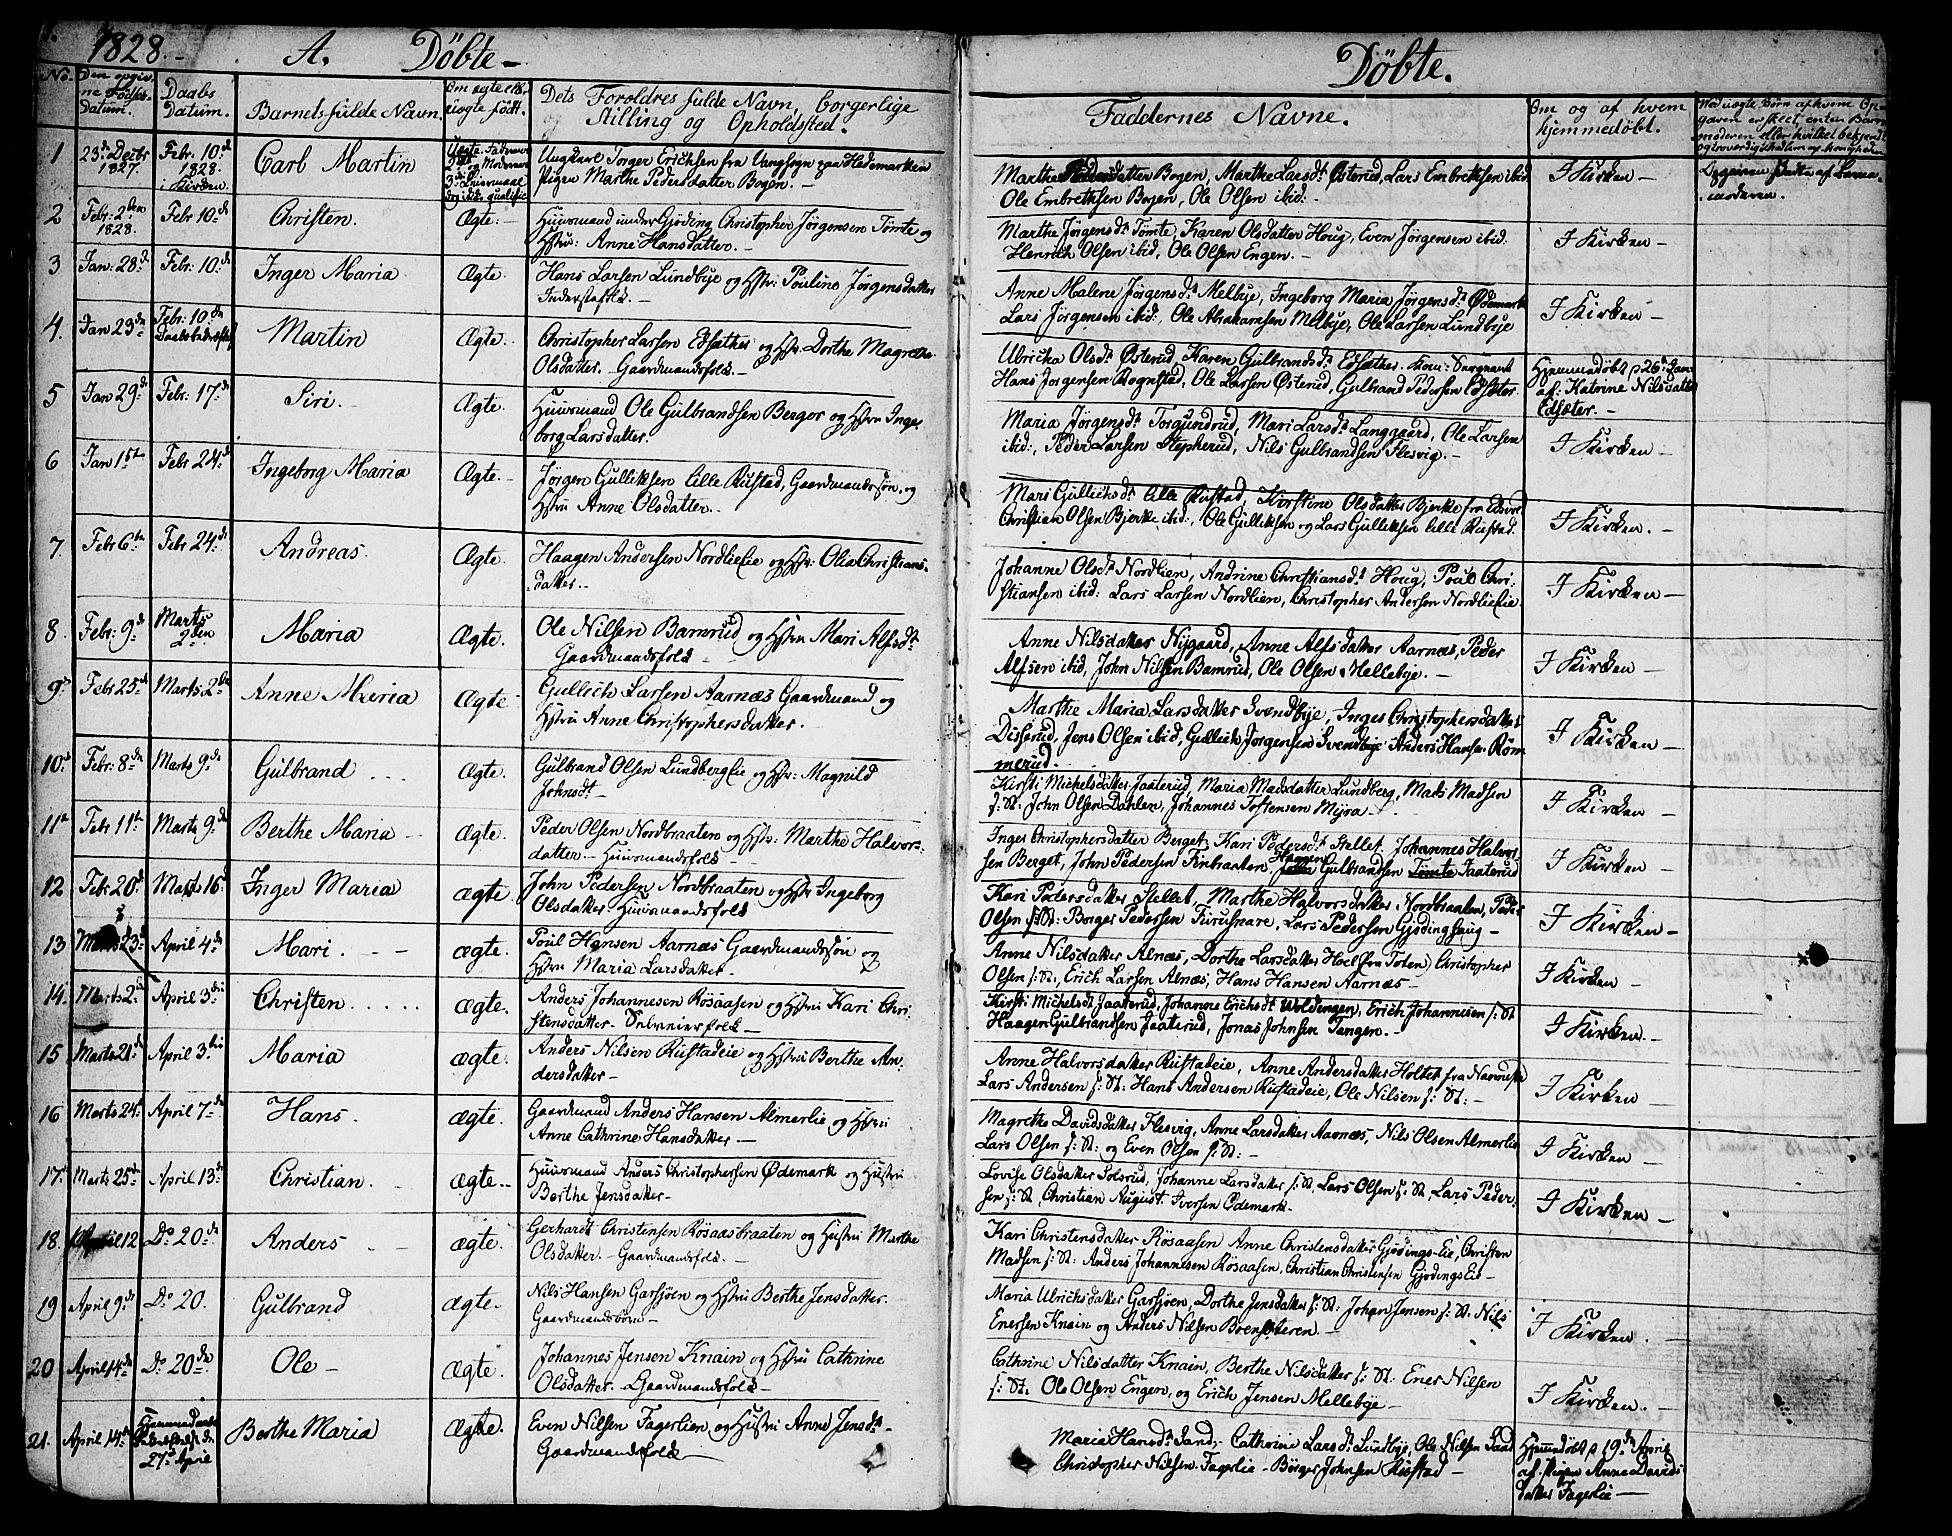 1828.
A. Döbte
No.
Den opgiv-
ne Födsels
Datum.
Daabs
Datum.
Barnets fulde Navn.
Om ægte eller
uægte födt.
Dets Foreldres fulde Navn, borgerlige
Stilling og Opholdssted.
1
23de Decbr
1827.
Febr. 10de
1828.
i Kirken
Carl Martin
Ungkarl Torger Erichsen fra Vangsogn paa Hedemarken
Pigen Marthe Pedersdatter Bogen.
2
Febr. 2den
1828.
Febr 10de
Christen.
Ægte.
Huusmand under Gjöding Christopher Jörgensen Tömte og
Hstru: Anne Hansdatter.
3
Jan: 28de
Febr: 10de
Inger Maria
Ægte.
Hans Larsen Lundbye og Hstr: Pouline Jörgensdatter
Inderstefolk.
4.
Jan 23de
Febr: 10de
Martin
Ægte.
Christopher Larsen Edsæther og Hstr. Dorthe Magrethe
Olsdatter. Gaardmandsfolk
5
Jan 29de
Febr: 17de
Siri.
Ægte.
Huusmand Ole Gulbrandsen Berger og Hstru Inge-
borg Larsdatter.
6
Jan 1ste
Febr 24de
Ingeborg Maria
Ægte.
Jörgen Gulliksen lille Rustad, Gaardmandssön, og
Hstru Anne Olsdatter.
7
Febr 6te
Febr 24de
Andreas.
Ægte.
Haagen Andersen Nordlieeie og Hstr. Olia Christians-
datter.
8.
Febr: 9de
Marts
2den
Maria
Ægte.
Ole Nilsen Bamrud og Hstru Mari Alfsdt
Gaardmandsfolk
9
Febr 25de
Marts 2den
Anne Maria
Ægte
Gullich Larsen Aarnæs Gaardmand og
Hstru Anne Christophersdatter.
10
Febr: 8de
Marts 9de
Gulbrand ...
Ægte.
Gulbrand Olsen Lundbergeie og Hstr: Magnild
Johnsdt
11
Febr 11te
Marts 9de
Berthe Maria
Ægte.
Peder Olsen Nordbraaten og Hstr: Marthe Halvors-
datter. Huusmandsfolk
12
Febr 20de
Marts 16de
Inger Maria
Ægte.
John Pedersen Nordbraaten og Hstr Ingeborg
Olsdatter. Huusmandsfolk
13
Marts 23de
April 4de
Mari.
Ægte.
Poul Hansen Aarnæs Gaardmandssön og
Hstru Maria Larsdatter
14.
Marts 2den
April 3die
Christen
Ægte.
Anders Johannesen Rösaasen og Hstru Kari Chri-
stensdatter. Selveierfolk
15
Marts 21de
April 3die
Maria
Ægte.
Anders Nilsen Rustadeie og Hstru Berthe An-
dersdatter
16
Marts 24de
April 7de
Hans.
Ægte.
Gaardmand Anders Hansen Almerlie og Hstru
Anne Cathrine Hansdatter
17.
Marts 25de
April 13de
Christian.
Ægte.
Huusmand Anders Christophersen Ödemark og Hustru
Berthe Jensdatter
18.
April 12
Do 20de
Anders
Ægte.
Gerhardt Christensen Rösaasbraaten og Hustru Marthe
Olsdatter. Gaardmandsfolk.
19
April 9de
Do 20.
Gulbrand
Ægte.
Nils Hansen Garsjöen og Hstru Berthe Jensdatter.
20
April 14de
Do 20de
Ole
Ægte.
Johannes Jensen Knain og Hstru Cathrine
Olsdatter. Gaardmandsfolk
21.
April 14de
27de April
Berthe Maria
Ægte.
Even Nilsen Fagerlien og Hustru Anne Jensdt
Gaardmandsfolk
Döbte.
Faddernes Navne.
Om og af hvem
hjemmedöbt.
Marthe Pedersdatter Bogen, Marthe Larsdt Österud, Lars Embrethsen ibid
Ole Embrethsen Bogen, Ole Olsen ibid:
I Kirken
Marthe Jörgensdt Tömte, Karen Olsdatter Houg, Even Jörgensen ibid.
Henrich Olsen ibid, Ole Olsen Engen.
I Kirken
Anne Malene Jörgensdt Melbye, Ingeborg Maria Jörgensdt Ödemark
Lars Jörgensen ibid:, Ole Abrahamsen Melbye, Ole Larsen Lundbye
I Kirken
Ulricka Olsdt Österud, Karen Gulbrandsdt Edsæther.
Hans Jörgensen Rognstad, Ole Larsen Österud, Gulbrand Pedersen Edsæter.
Hjemmedöbt 26de Jan
af: Katrine Nilsdatter
Edsæter.
Maria Jörgensdt Torgundrud, Mari Larsdt Langgaard, Ole Larsen
ibid:, Peder Larsen Stepherud, Nils Gulbrandsen Flesvig.
I Kirken
Mari Gullichsdt lille Rustad, Kirstine Olsdatter Bjerke fra Edsvold
Christian Olsen Bjerke ibid:, Ole Gulliksen og Lars Gulliksen lille Rustad.
I Kirken.
Johanne Olsdt Nordlien, Andrine Christiansdt Houg, Poul Chri-
stiansen ibid: Lars Larsen Nordlien, Christopher Andersen Nordlieeie.
I Kirken
Anne Nilsdatter Nygaard, Anne Alfsdatter Aarnæs, Peder
Alfsen ibid, John Nilsen Bamrud, Ole Olsen Mellebye.
I Kirken
Marthe Maria Larsdatter Svendbye, Inger Christophersdatter
Disserud, Jens Olsen ibid, Gullich Jörgensen Svendbye Anders Hansen Röm
merud.
I Kirken
Kirsti Michelsdatter Jaaterud, Maria Madsdatter Lundberg, Mads Madsen
s: St: John Olsen Dahlen, Johannes Tostensen Myra
I Kirken
Inger Christophersdatter Berget. Kari Pedersdt Stellet. Johannes Halvor-
sen Berget, John Pedersen Finbraaten. Haagen Gulbrandsen Tömte Jaaterud
I Kirken
Kari Pedersdatter Stellet Marthe Halvorsdatter Nordbraaten, Peder
Olsen s: St: Borger Pedersen Furusnare, Lars Pedersen Gjödinghaug
I Kirken
Anne Nilsdatter Alnæs, Dorthe Larsdatter Hoel (fra Toten) Christopher
Olsen s: St:, Erich Larsen Alnæs, Hans Hansen Aarnæs
I Kirken
Kirsti Michelsdt Jaaterud, Johanne Erichsdt Woldengen, Erich Johannesen s: St
Haagen Gulbrandsen Jaaterud, Jonas Johnsen Tangen.
I Kirken.
Anne Halvorsdatter Rustadeie, Anne Andersdatter Holtet fra
Lars Andersen s: St: Hans Andersen Rustadeie, Ole Nilsen s: St:
I Kirken
Magrethe Davidsdatter Flesvig, Anne Larsdatter Aarnæs, Nils Olsen Almerlie
Lars Olsen s: St: og Even Olsen s: St:
I Kirken
Lovise Olsdatter Solsrud, Johanne Larsdatter s: St, Lars Olsen s: St. Lars Peder-
sen s: St, Christian August Iversen Ödemark.
I Kirken
Kari Christensdatter Rösaasen Anne Christensdatter Gjödings-Eie, Christen
Madsen s: St: Anders Johannesen Rösaasen, Christian Christensen Gjödings Eie
Maria Ulrichsdatter Garsjöen, Dorthe Jensdatter s: St: Johan Jensen s: St: Nils
Enersen Knain og Anders Nilsen Boensæteren
I Kirken.
Cathrine Nilsdatter Knain, Berthe Nilsdatter s: St: Ener Nilsen
s: St. Ole Olsen Engen, og Erich Jensen Mellebye
I Kirken.
Maria Hansdt Sand, Cathrine Larsdt Lundbye, Ole Nilsen Sand
Christopher Nilsen Fagerlie - Börger Johnsen Rustad
Hjemmedöbt 19de April
af Pigen Anne Davids
datter Fagerlie